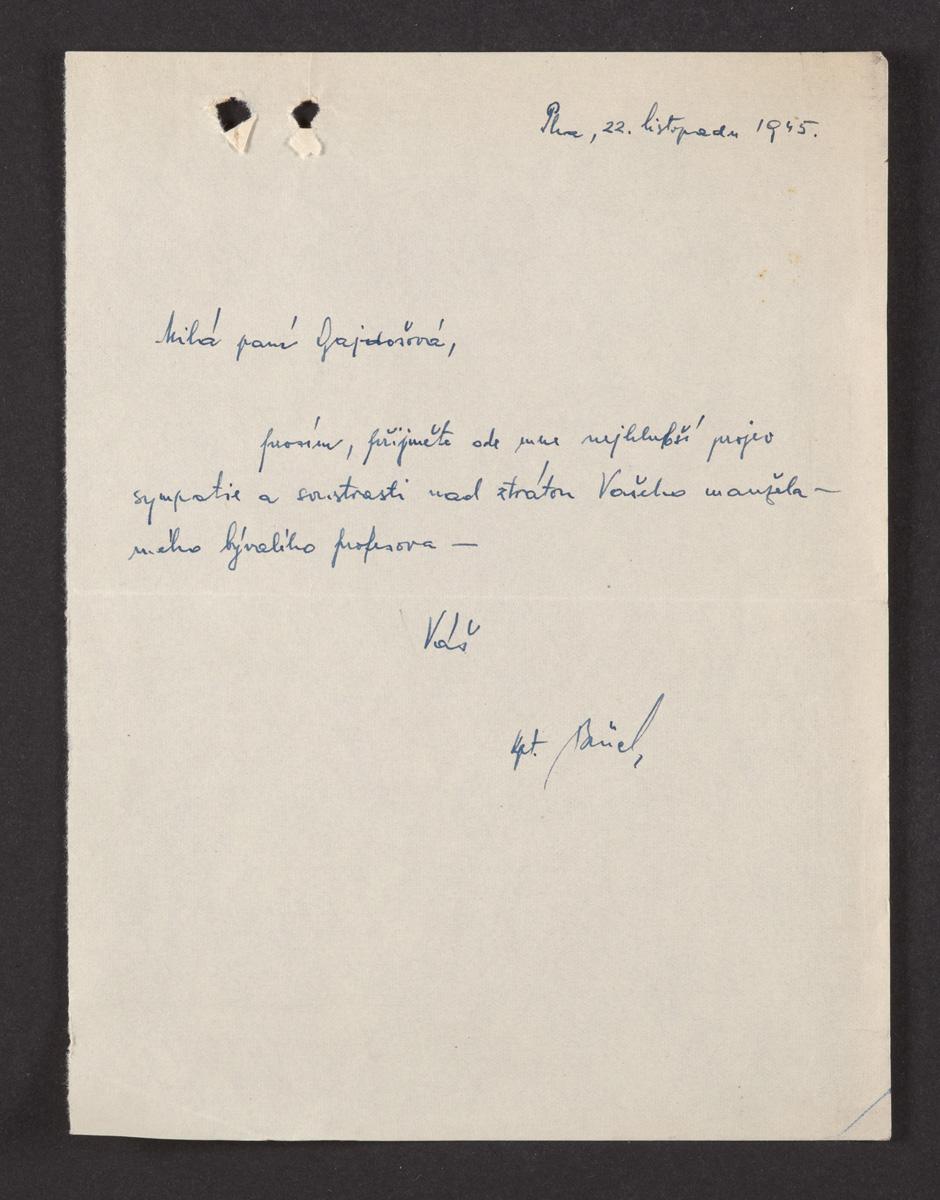 Pha, 22. listopadu 1945.
Milá paní Gajdošová,
prosím, přijměte ode mne nejhlubší projev
sympatie a soustrasti nad ztrátou Vašeho manžela —
mého bývalého profesora —
Váš
kpt.